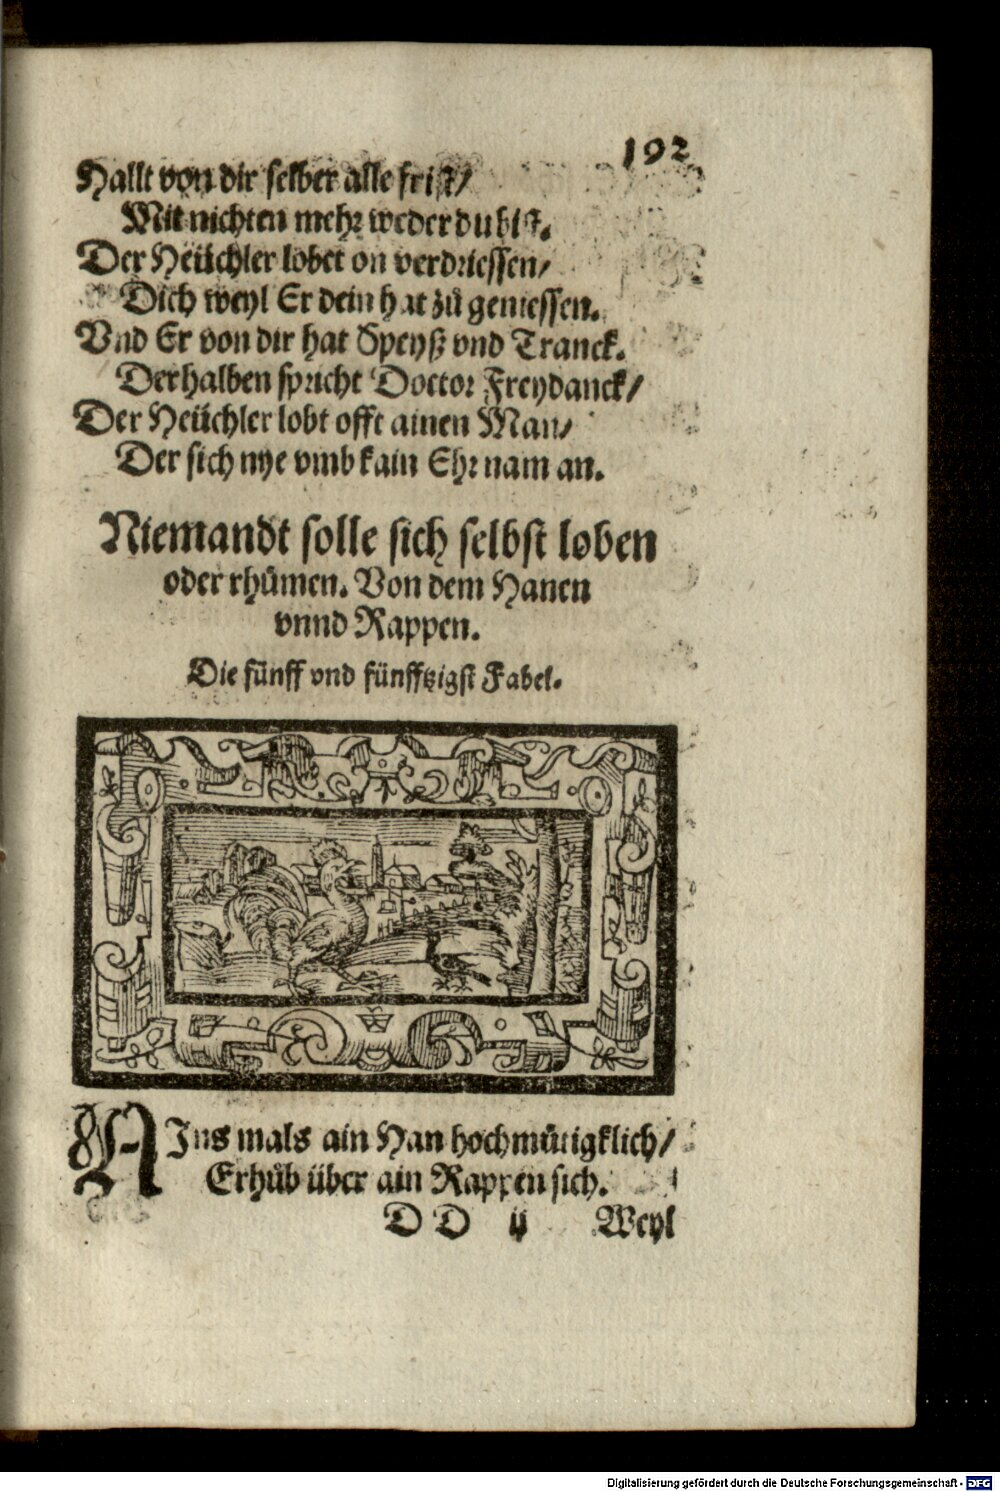 192
Hallt von dir selber alle frist/
Mit nichten mehr weder du bist.
Der Heüchler lobet on verdriessen/
Dich weyl Er dein hat zů geniessen.
Vnd Er von dir hat Speyß vnd Tranck.
Derhalben spricht Doctor Freydanck/
Der Heüchler lobt offt ainen Man/
Der sich nye vmb kain Ehr nam an.
Niemandt solle sich selbst loben
oder rhůmen. Von dem Hanen
vnnd Rappen.
Die fünff vnd fünfftzigst Fabel.
AJns mals ain Han hochmůtigklich/
Erhůb über ain Rappen sich.
D D ij Weyl
Digitalisierung gefördert durch die Deutsche Forschungsgemeinschaft - DFG